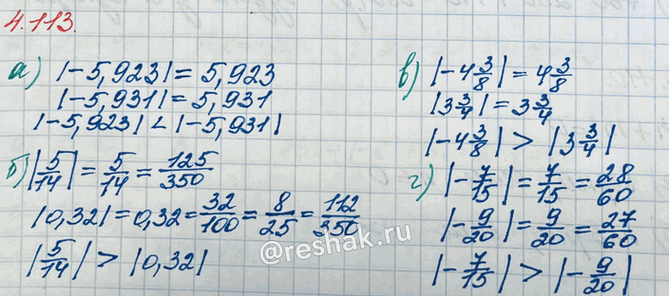 4.113.
а) |-5,923| = 5,923
|-5,931| = 5,931
|-5,923| < |-5,931|
б) |5/14| = 5/14 = 125/350
|0,32| = 0,32 = 32/100 = 8/25 = 112/350
|5/14| > |0,32|
в) |-4 3/8| = 4 3/8
|3 3/4| = 3 3/4
|-4 3/8| > |3 3/4|
г) |-7/15| = 7/15 = 28/60
|-9/20| = 9/20 = 27/60
|-7/15| > |-9/20|
@reshak.ru